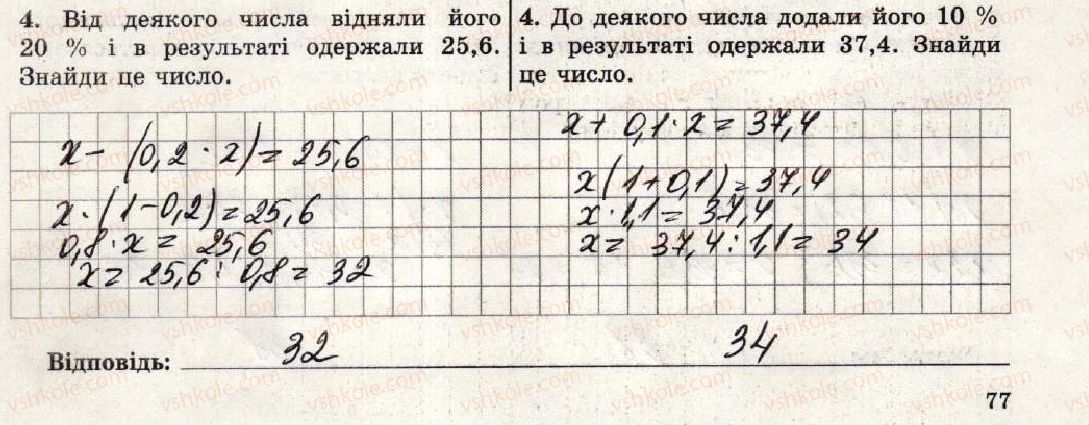 4. Від деякого числа відняли його
20 % і в результаті одержали 25,6.
Знайди це число.
4. До деякого числа додали його 10 %
і в результаті одержали 37,4. Знайди
це число.
x - (0,2 · x) = 25,6
x · (1 - 0,2) = 25,6
0,8 · x = 25,6
x = 25,6 : 0,8 = 32
x + 0,1 · x = 37,4
x (1 + 0,1) = 37,4
x · 1,1 = 37,4
x = 37,4 : 1,1 = 34
Відповідь: 32 34
77
vshkole.com